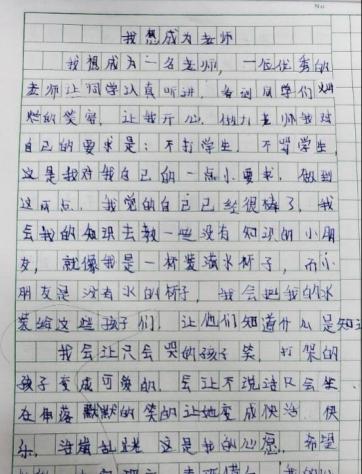 No
我想成为老师
我想成为一名老师，一位优秀的
老师让同学认真听讲，看到同学们灿
烂的笑容，让我开心，做为老师我对
自己的要求是：不打学生，不骂学生，
这是我对我自己的一点小要求，做到
这两点，我觉的自己已经很棒了，我
会我的知识去教一些没有知识的小朋
友，就像我是一杯装满水杯子，而小
朋友是没有水的杯子，我会把我的水
装给这些孩子们，让他们知道什么是知识
我会让只会哭的孩子笑，打架的
孩子变成可爱的，会让不说话只会坐
在角落默默的笑的让她变成快活、快
乐，活蹦乱跳 这是我的心愿，希望